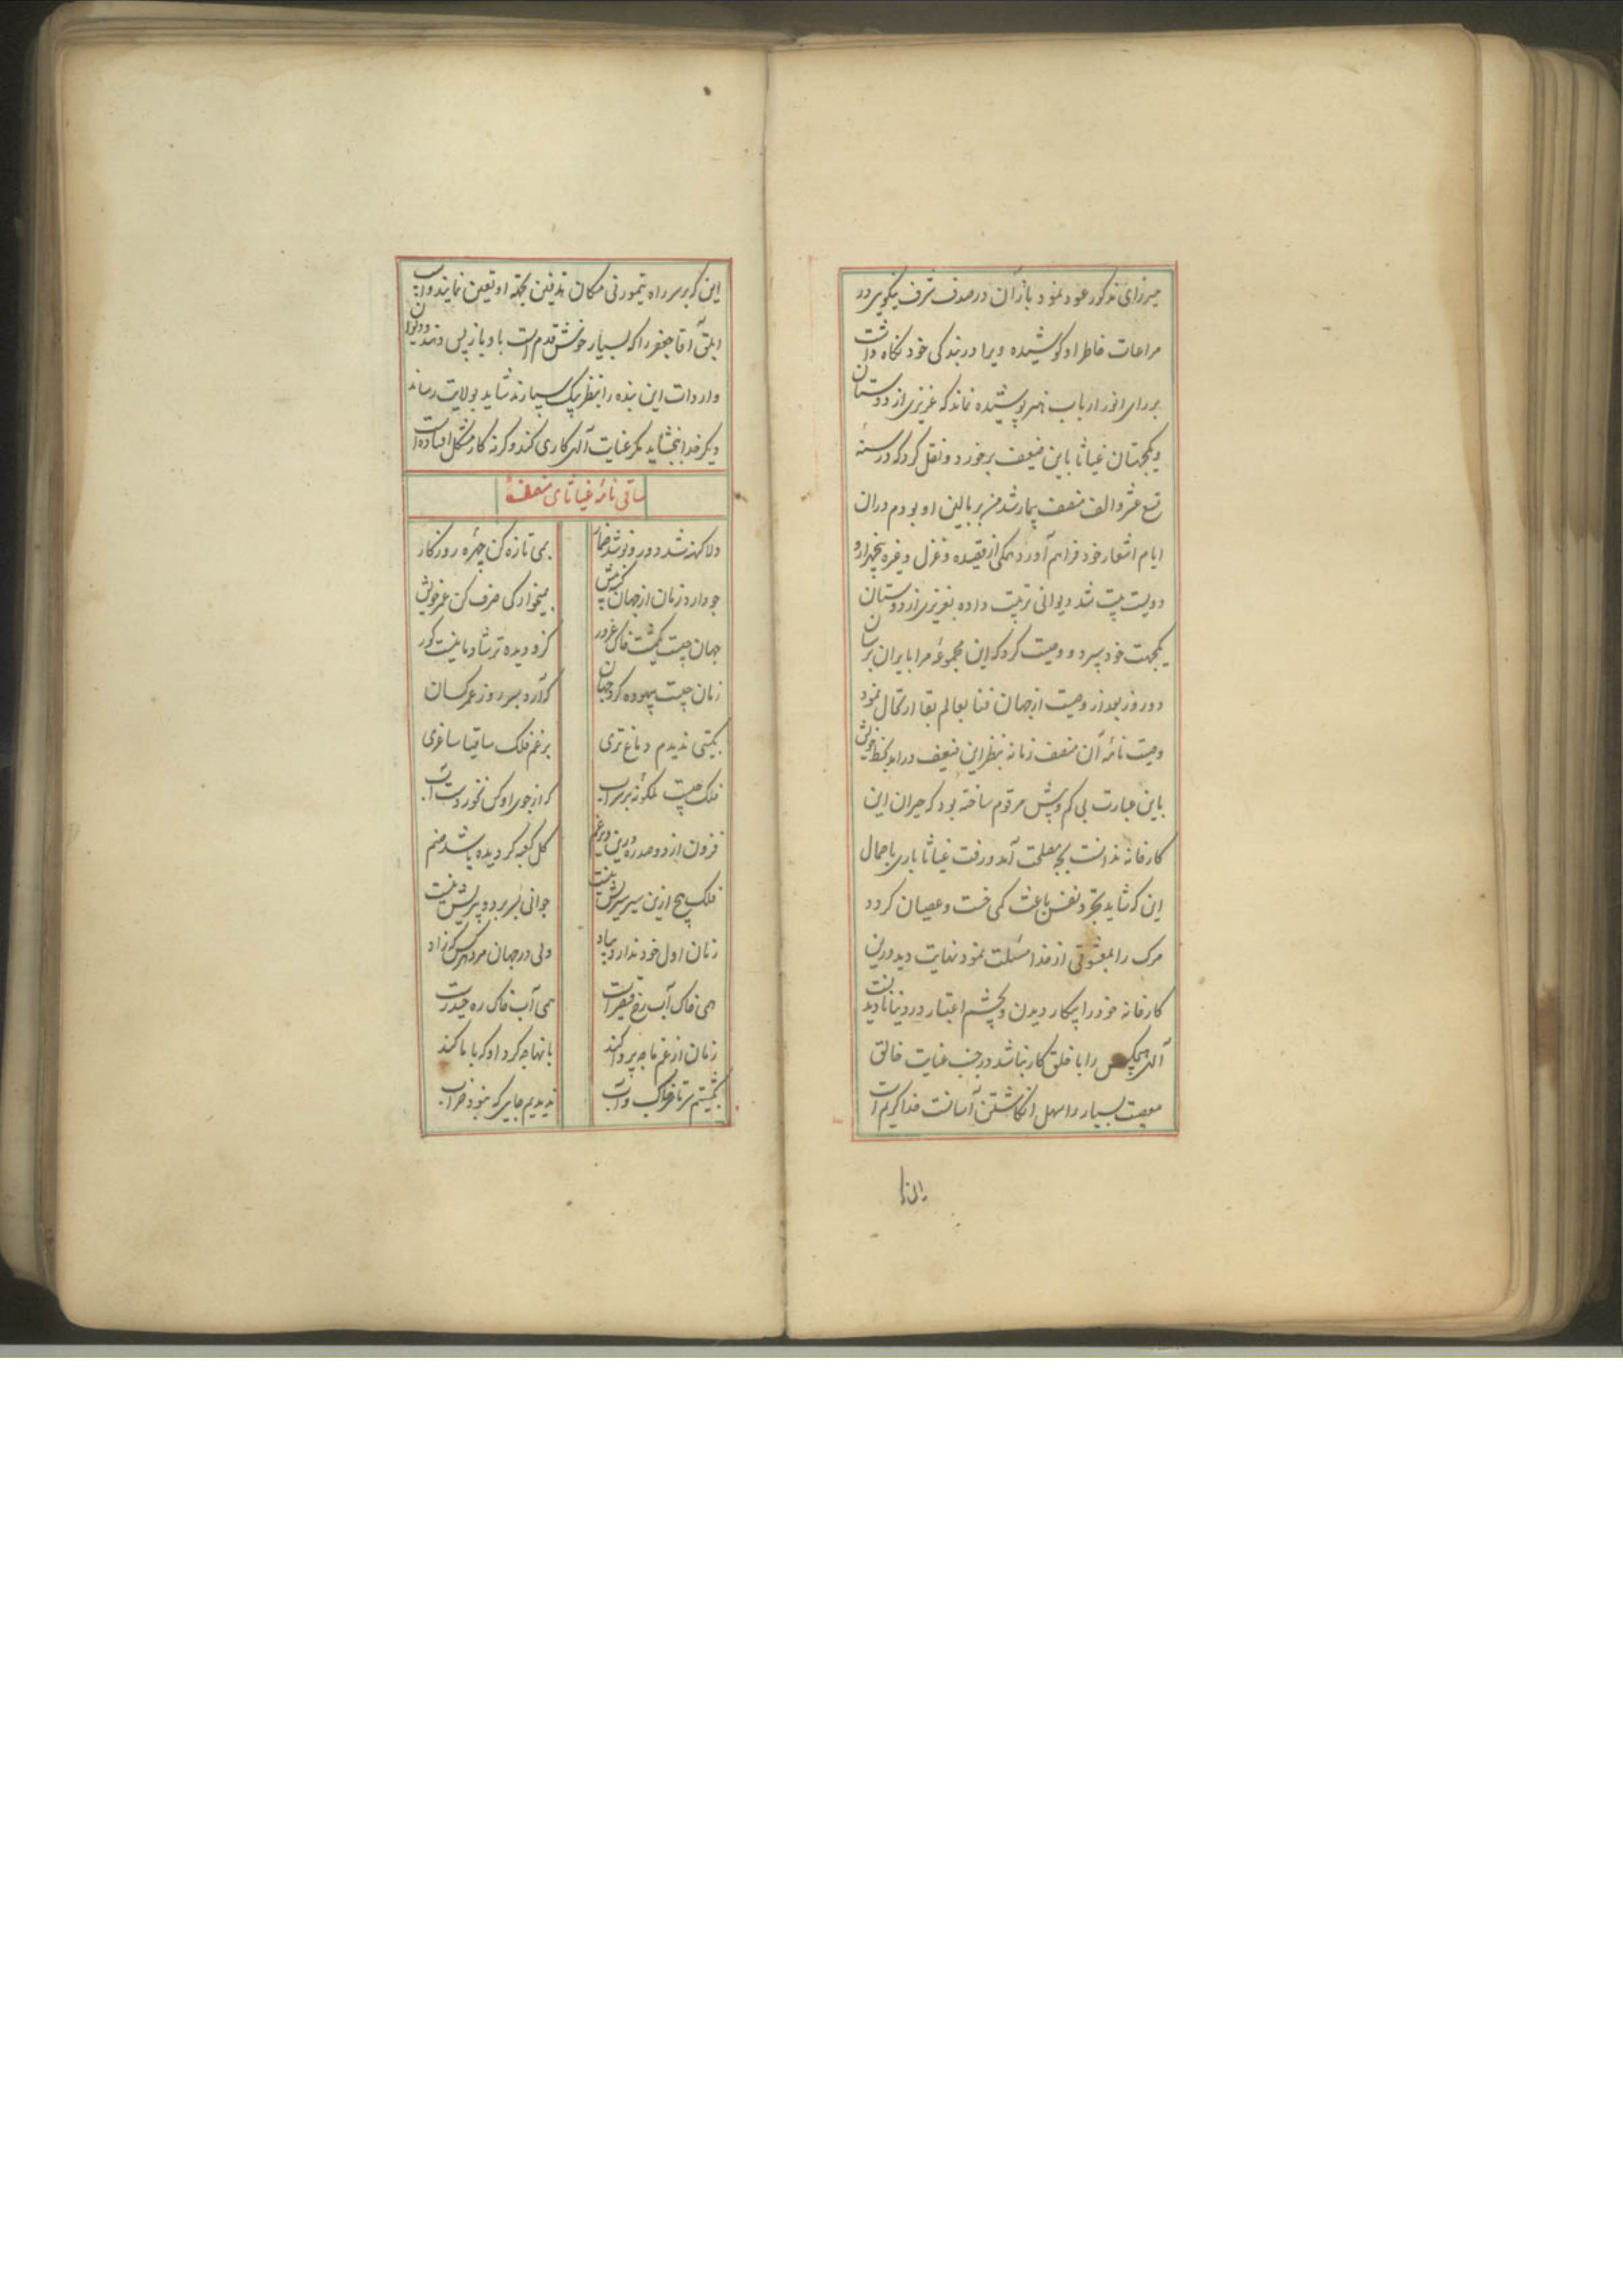 میرزای مذکور عود نمود باز آن در صدف شرف بنکویی در
مراعات خاطر او کوشیده ویرا در بندکی خود نکاه داشت
بر رای انور ارباب هنر پوشیده نماند که عزیزی از دوستان
و یکجهتان غیاثا باین ضعیف برخورد و نقل کرد که در سنه
تسع عشر و الف منصف بیمار شد من بر بالین او بودم در آن
ایام اشعار خود فراهم آورد همکی از قصیده و غزل و غیره پنجهزار و
دویست بیت شد دیوانی ترتیب داده بعزیزی از دوستان
یکجهت خود سپرد و وصیت کرد که این مجموعه مرا بایران برسان
دو روز بعد از وصیت از جهان فنا بعالم بقا ارتحال نمود
وصیت نامه آن منصف زمانه بنظر این ضعیف درامد بخط خویش
باین عبارت بی کم و بیش مرقوم ساخته بود که حیران این
کارخانه ندانست بچه مصلحت آمد و رفت غیاثا باری باجمال
این که شاید تجرد نفس باعث کمی خست و عصیان کردد
مرک را بمعشوقی از خدا مسئلت نمود نهایت دید درین
کارخانه خود را بیکار دیدن و بچشم اعتبار در دنیا نادیدنست
آلهی هیچکس را با خلق کار نباشد در جنب عنایت خالق
معصیت بسیار را سهل انکاشتن آسانست خدا کریم است
این که بر سر راه تیموری مکان تدفین بجهته او تعین نمایند و اسب
ابلق آقا جعفر را که بسیار خوش قدم است باو باز پس دهند و دیوان
واردات این بنده را بنظر بیک سپارند شاید بولایت رساند
دیکر خدا ببخشاید مکر عنایت آلهی کاری کند و کرنه کار مشکل افتاده است
ساقی نامهٔ غیاثای منصف
دلا کهنه شد دور و نو شد خمار بمی تازه کن چهرهٔ روزکار
چو دارد زمان از جهان کم مپیش بمیخوارکی صرف کن عمر خویش
جهان چیست یکمشت خاک غرور کزو دیده تر شاد ما نیست کور
زمان چیست بیهوده کرد جهان که آرد بسر روز عمر کسان
بکیتی ندیدم دماغ تری برغم فلک ساقیا ساغری
فلک چیست نلکونه بر سراب که از جوی او کس نخوردست آب
فزون از دو صد ره درین دیر غم کل کعبه کردیده باشد صنم
فلک هیچ ازین سیر سیریش نیست جوانی بسر برد و پیریش نیست
زمان اول خود ندارد بیاد ولی در جهان مرد هر کس که زاد
همی خاک آب رخ قیصر است همی آب خاک ره حیدرست
زمان از غم ما چه پروا کند بآنها چه کرد او که با ما کند
بکشتیم سرتاسر خاک و آب ندیدیم جایی که نبود خراب
این